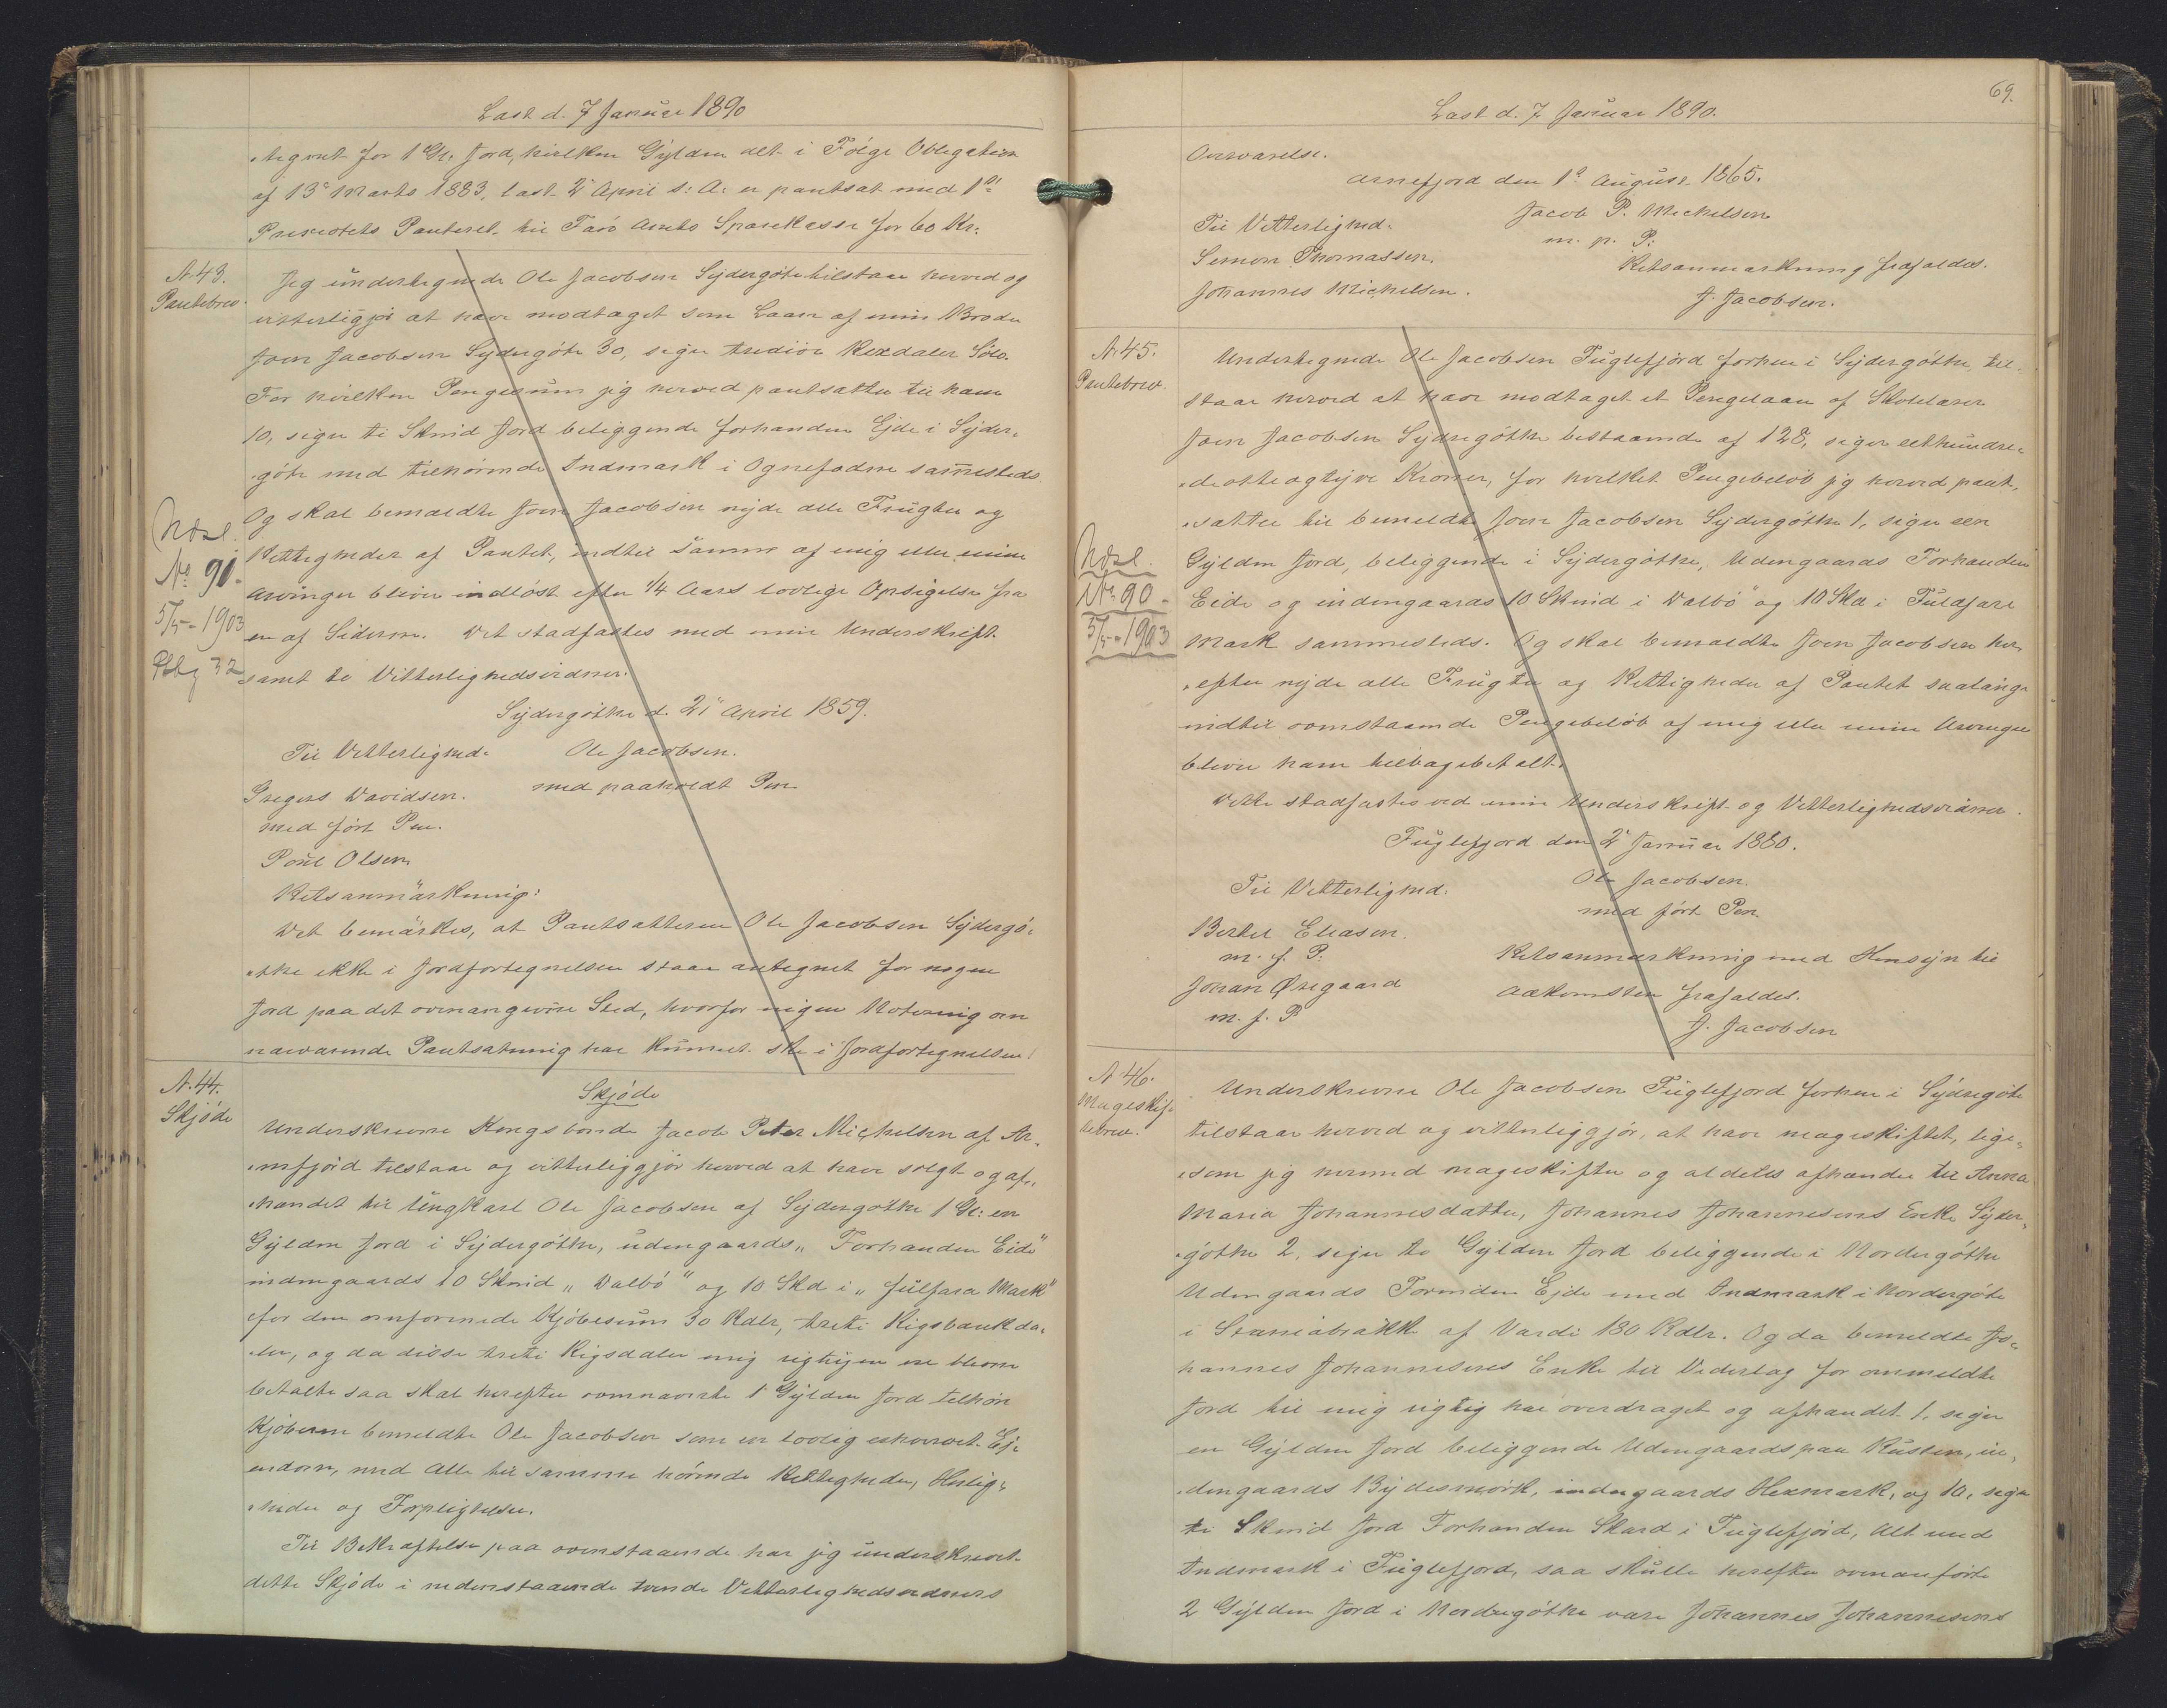 Læst d. 7 Januar 1890
.tegnet for 1 Gl. Jord, hvilken Gylden alt i Følge Obligation
af 13de Marts 1883, læst 2 April s: A: er pantsat med 1ste
Prioritets Panteret til Færø Amts Sparekasse for 60 Kr:
N. 43.
Pantebrev.
Jeg undertegnede Ole Jacobsen Sydergöte tilstaar herved og
vitterliggjör at have modtaget som Laan af min Broder
Joen Jacobsen Sydergöte 30, siger tredive Rigsdaler Sölv.
For hvilken Pengesum jeg herved pantsætter til ham
10, siger ti Skind Jord beliggende forhanden Ejde i Syder-
.göte med tilhörende Indmark i Ognefadme sammesteds.
Og skal bemældte Joen Jacobsen nyde alle Frugter og
Rettigheder af Pantet, indtil Samme af mig eller mine
Arvinger bliver indlöst efter 1/4 Aars lovlige Opsigelse fra
en af Siderne. Det stadfæstes med min Underskrift
samt to Vitterlighedsvidner.
No 90.
5/5-1903
32
Sydergöthe d. 21 April 1859.
Til Vitterlighed. Ole Jacobsen.
Gregers Davidsen. med paaholdt Pen
med fört Pen.
Poul Olsen
Retsanmärkning:
Det bemärkes, at Pantsætteren Ole Jacobsen Sydergö-
.the ikke i Jordfortegnelsen staar antegnet for nogen
Jord paa det ovenangivne Sted, hvorfor ingen Notering om
nærværende Pantsætning har kunnet ske i Jordfortegnelsen.
N. 44.
Skjöde
Skjöde
Underskrevne Kongsbonde Jacob Peter Michelsen af Ar-
.nefjord tilstaar og vitterliggjör herved at have solgt og af-
.hændet til Ungkarl Ole Jacobsen af Sydergöthe 1 Gl: en
Gylden Jord i Sydergöthe, udengaards „Forhanden Eide"
indengaards 10 Skind „Dalbö" og 10 Skd i „Fulfara Mark"
for den omforenede Kjöbesum 30 Rdlr, treti Rigsbankda-
.ler, og da disse treti Rigsdaler mig rigtigen ere blevne
betalte saa skal herefter ovennævnte 1 Gylden Jord tilhöre
Kjöberen bemeldte Ole Jacobsen som en lovlig erhvervet Ej-
endom, med alle til samme hörende Rettigheder, Herlig-
.heder og Forpligtelser.
Til Bekræftelse paa ovenstaaende har jeg underskrevet
dette Skjöde i nedenstaaende tvende Vitterlighedsvidners
69.
Læst d. 7 Januar 1890.
Overværelse.
Arnefjord den 1ste August 1865.
Til Vitterlighed. Jacob P. Michelsen
m. p. P:
Semon Thomassen. Retsanmærkning frafaldes.
Johannes Michelsen. J. Jacobsen.
N. 45.
Pantebrev.
Undertegnede Ole Jacobsen Fuglefjord forhen i Sydergöthe, til-
staar herved at have modtaget et Pengelaan af Skolelærer
Joen Jacobsen Sydregöthe bestaaende af 128, siger eethundre-
.deotteogtyve Kroner, for hvilket Pengebelöb jeg herved pant-
.sætter til bemeldte Joen Jacobsen Sydergöthe 1, siger een
Gylden Jord, beliggende i Sydergöthe, Udengaards Forhanden
Eide og indengaards 10 Skind i Dalbö og 10 Skd i Fulafare
Mark sammesteds. Og skal bemældte Joen Jacobsen her-
.efter nyde alle Frugter og Rettigheder af Pantet saalænge
indtil ovenstaaende Pengebelöb af mig eller mine Arvinger
bliver ham tilbagebetalt.
Dette stadfæstes ved min Underskrift og Vitterlighedsvidner.
No. 90.
5/5-1903
Fuglefjord den 2 Januar 1880.
Til Vitterlighed. Ole Jacobsen
med fört Pen
Bertel Eliasen.
m. f. P. Retsanmærkning med Hensyn til
Johan Øregaard Adkomsten frafaldes.
m. f. P J. Jacobsen
N 46.
Mageskif-
tebrev.
Underskrevne Ole Jacobsen Fuglefjord forhen i Sydregöte
tilstaar herved og vitterliggjör, at have mageskiftet, lige-
.som jeg hermed mageskifter og aldeles afhænder til Anna
Maria Johannesdatter, Johannes Johannesens Enke Syder-
.göthe 2, siger to Gylden Jord beliggende i Nordergöthe
Udengaards Forneden Ejde med Indmark i Nordergöte
i af Værdi 180 Rdlr. Og da bemeldte Jo-
hannes Johannesens Enke til Vederlag for ommeldte
Jord til mig rigtig har overdraget og afhændet 1, siger
en Gylden Jord beliggende Udengaards paa Kusten, in-
.dengaards Bydesmörk, indengaards Hexmark, og 10, siger
ti Skind Jord Forhanden Skard i Fuglefjord, Alt med
Indmark i Fuglefjord, saa skulle herefter ovenanförte
2 Gylden Jord i Nordregöthe være Johannes Johannesens